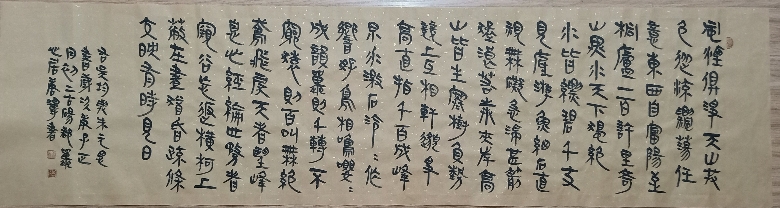 風煙俱淨天山共
色從流飄蕩任
意東西自富陽至
桐廬一百許里奇
山異水天下獨絕
水皆縹碧千丈
見底游魚細石直
視無礙急湍甚箭
猛浪若奔夾岸高
山皆生寒樹負勢
競上互相軒邈爭
高直指千百成峰
泉水激石泠泠作
響好鳥相鳴嚶嚶
成韻蟬則千轉不
窮猿則百叫無絕
鳶飛戾天者望峰
息心經綸世務者
窺谷忘返橫柯上
蔽在晝猶昏疏條
交映有時見日
吳均與朱元思
書歲次庚子正
月初二
書